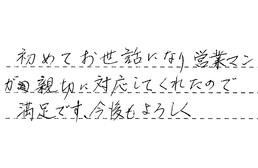 初めてお世話になり営業マン
が親切に対応してくれたので
満足です、今後もよろしく